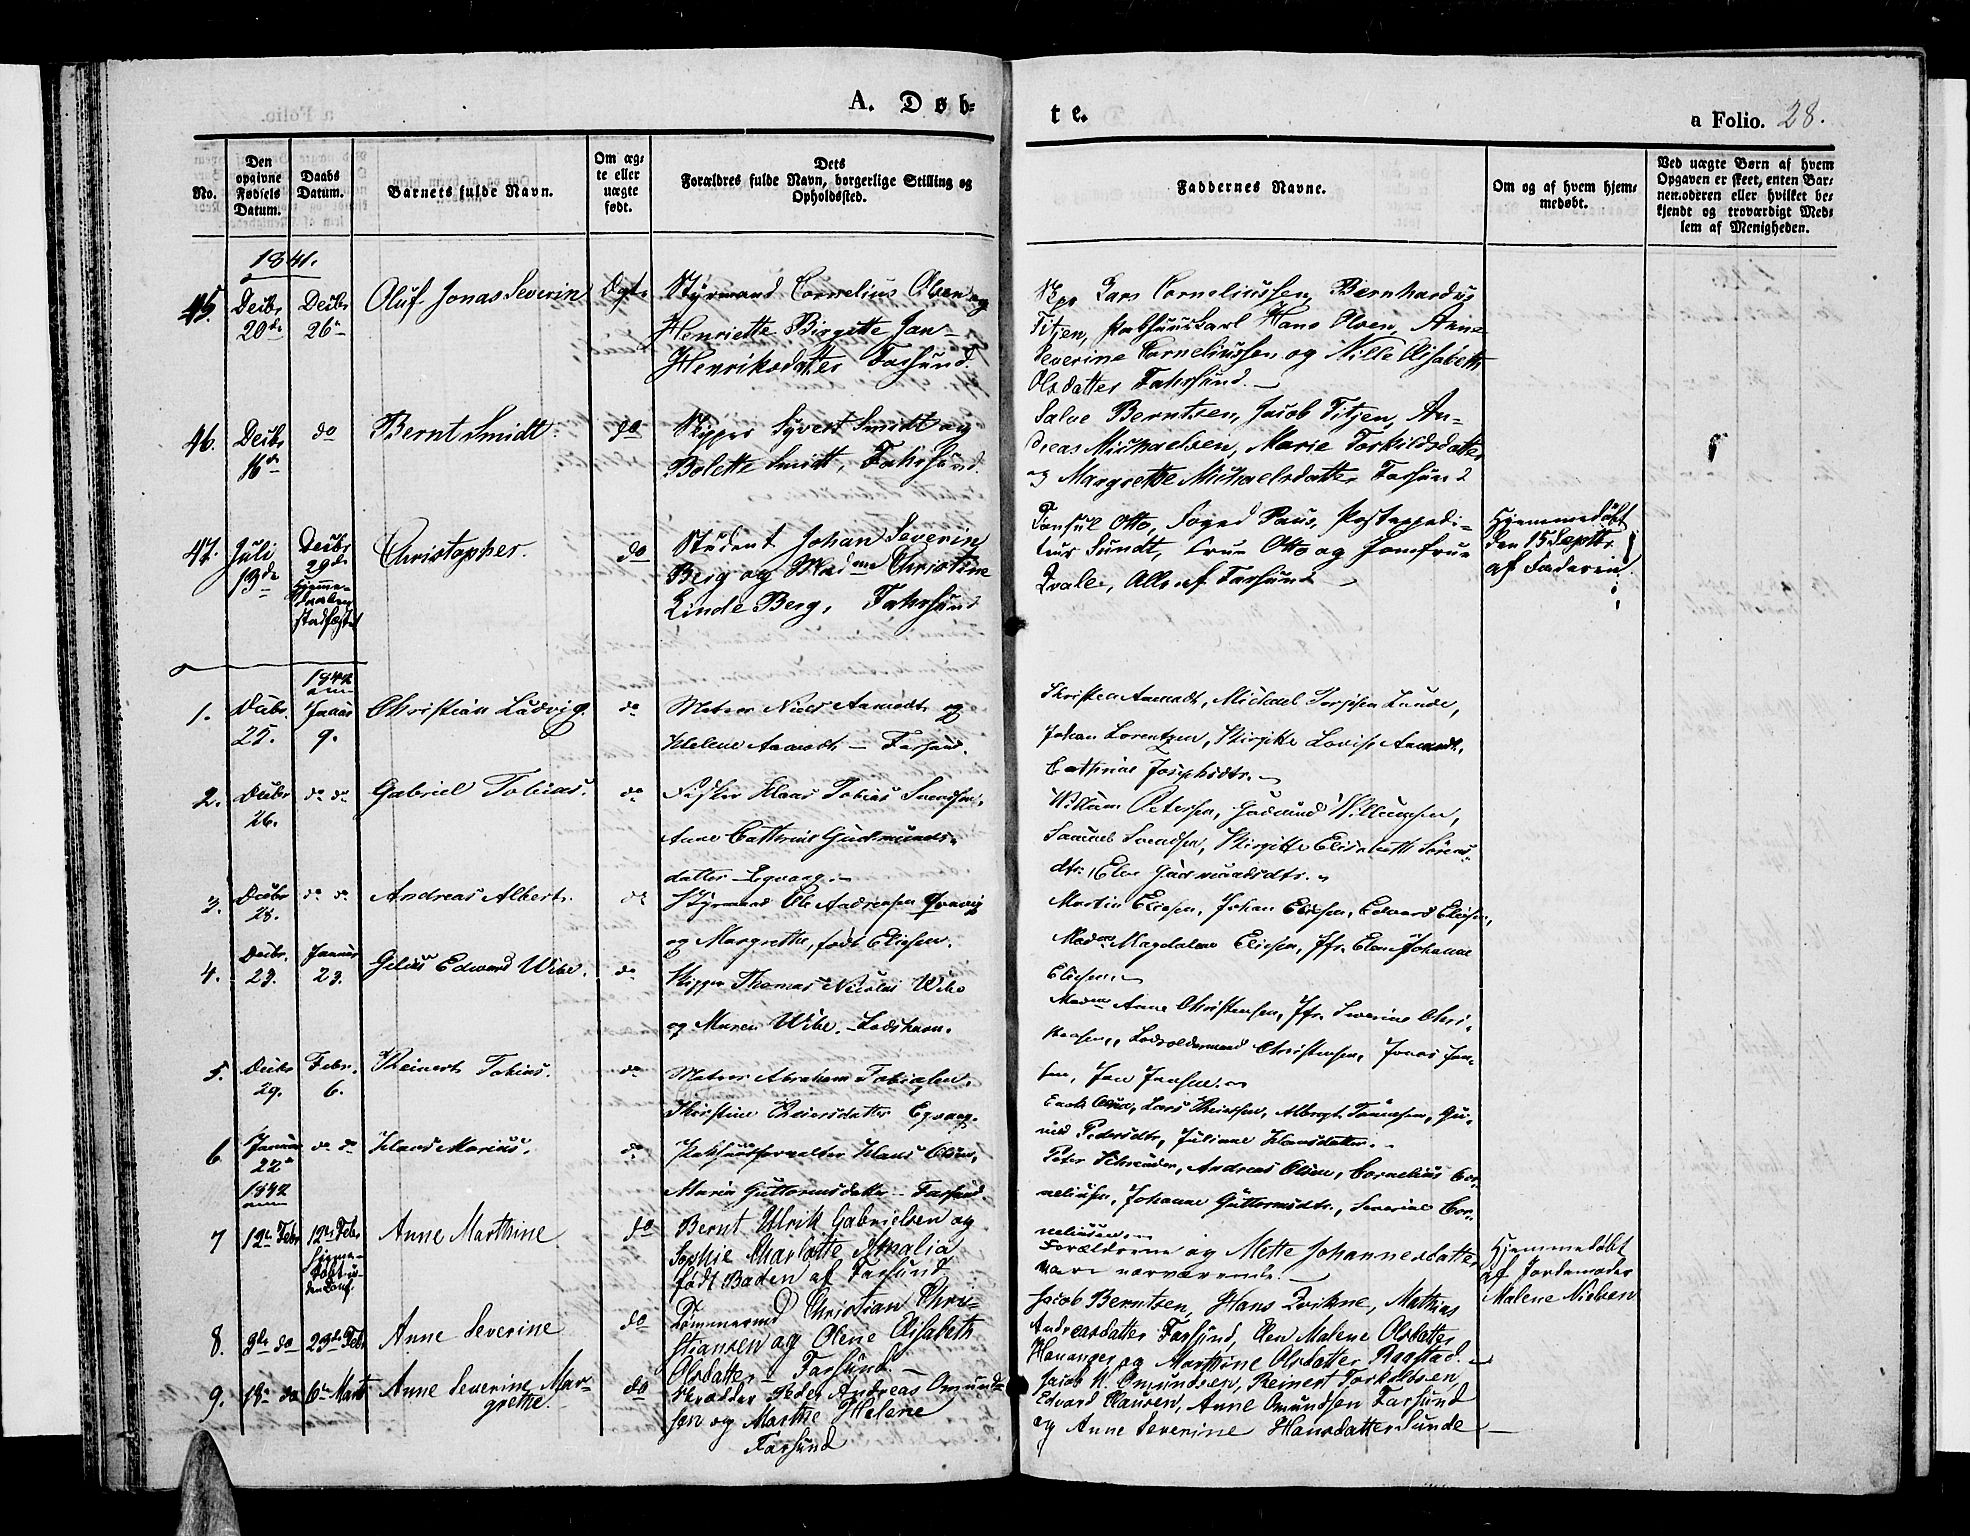 A. Døb-
te.
a Folio. 28.
No.
Den
opgivne
Fødsels
Datum.
Daabs
Datum.
Barnets fulde Navn.
Om æg-
te eller
uægte
født.
Dets
Forældres fulde Navn, borgerlige Stilling og
Opholdssted.
Faddernes Navne.
Om og af hvem hjem-
medøbt.
Ved uægte Børn af hvem
Opgaven er skeet, enten Bar-
nemoderen eller hvilket be-
kjendt og troværdigt Med-
lem af Menigheden.
1841.
45. Decbr 20de
Decbr 26de
Oluf Jonas Severin
Ægte
Styrmand Cornelius Olsen og
Henriette Birgitte Jan
Henriksdatter Farsund.
Lars Corneliussen, Bernhardus
Titjen, Pakhuuskarl Hans Olsen, Anne
Severine Corneliussen og Nille Elisabeth
Olsdatter Fahrsund.
46. Decbr 16de
do
Bernt Smidt
do
Skipper Syvert Smidt og
Bolette Smitt, Fahrsund.
Salve Berntsen, Jacob Titjen, An-
dreas Michaelsen, Marie Torkildsdatter
og Margrethe Michaelsdatter Farsund
47. Juli 13de
Decbr 29de
Hjemme-
daaben
stadfæstet
Christopher.
do
Student Johan Severin
Berg og Madme Christine
Linde Berg, Fahrsund
Consul Otto, Foged Paus, Postexpedi-
teur Sundt, Frue Otto og Jomfrue
Qvale, Alle af Farsund
Hjemmedöbt
den 15 Septbr.
af Faderen!
1842
1. Decbr. 25.
Januar 9.
Christian Ludvig.
do
Matros Niels Aamodt og
Helene Aamodt - Farsund.
Christen Aamodt, Michael Lunde,
Johan Lorentzen, Birgitte Lovise Aamodt,
Cathrine Josephsdtr.
2. Decbr 26.
do do
Gabriel Tobias.
do
Fisker Klaas Tobias Svendsen,
Anne Cathrine Gudmunds-
datter Eqvaag.
William Petersen, Gudmund Willumsen,
Samuel Svendsen, Birgitte Elisabeth Sörens-
dtr, Elen Gudmundsdtr.
3. Decbr 28.
do do
Andreas Albert.
do
Styrmand Ole Andreasen
og Margrethe, født Eliesen.
Martin Eliesen, Johan Eliesen, Edvard Eliesen,
Madm Magdalene Eliesen, Jfr. Elen Johanne
Eliesen.
4. Decbr. 23.
Januar 23.
Edward Wibe.
do
Skipper Thomas Nicolai Wibe
og Maren Wibe. Lodshavn.
Madm Anne Christensen, Jfr. Severine Chri-
stensen, Lodsoldermand Christensen, Jonas Jan-
sen, Jan Jansen.
5. Decbr 29.
Febr. 6.
Reinert Tobias.
do
Matros Abraham Tobiasen,
Kirstine Reiersdatter Eqvaag.
Enok Olsen, Lars Reiersen, Albregt Tönnesen, Gu-
nild Pedersdtr, Juliane Klausdatter.
6. Januar 22de
do do
Klaus Marius.
do
Pakhuusforvalter Klaus Olsen,
Maria Guttormsdatter - Farsund.
Peter Schreuder, Andreas Olsen, Cornelius Cor-
neliusen, Johanne Guttormsdtr, Severine Cor-
neliusen.
1842
7 12te Febr
12te Febr
Hjemme-
döbt
Anne Marthine
do
Bernt Ulrik Gabrielsen og
Sophie Charlotte Amalia
födt Baden af Farsund
Forældrene og Mette Johannesdatter
vare nærværende.
Hjemmedöbt
af Jordemoder
Malene Nielsen
8. 9de do
29de Feb
Anne Severine
do
Tømmermd Christian Chri-
stiansen og Olene Elisabeth
Olsdatter - Farsund
Jacob Berntsen, Hans Mathias
Andreasdatter Farsund, Elen Malene Olsdatter
Hananger og Marthine Olsdatter Raastad.
9. 18de do
6te Marts
Anne Severine Mar-
grethe.
do
Skrædder Peder Andreas Omund-
sen og Marthe Helene
Farsund
Jacob N Omundsen, Reinert Torkildsen,
Edvard Clausen, Anne Omundsen Farsund
og Anne Severine Hansdatter Lunde